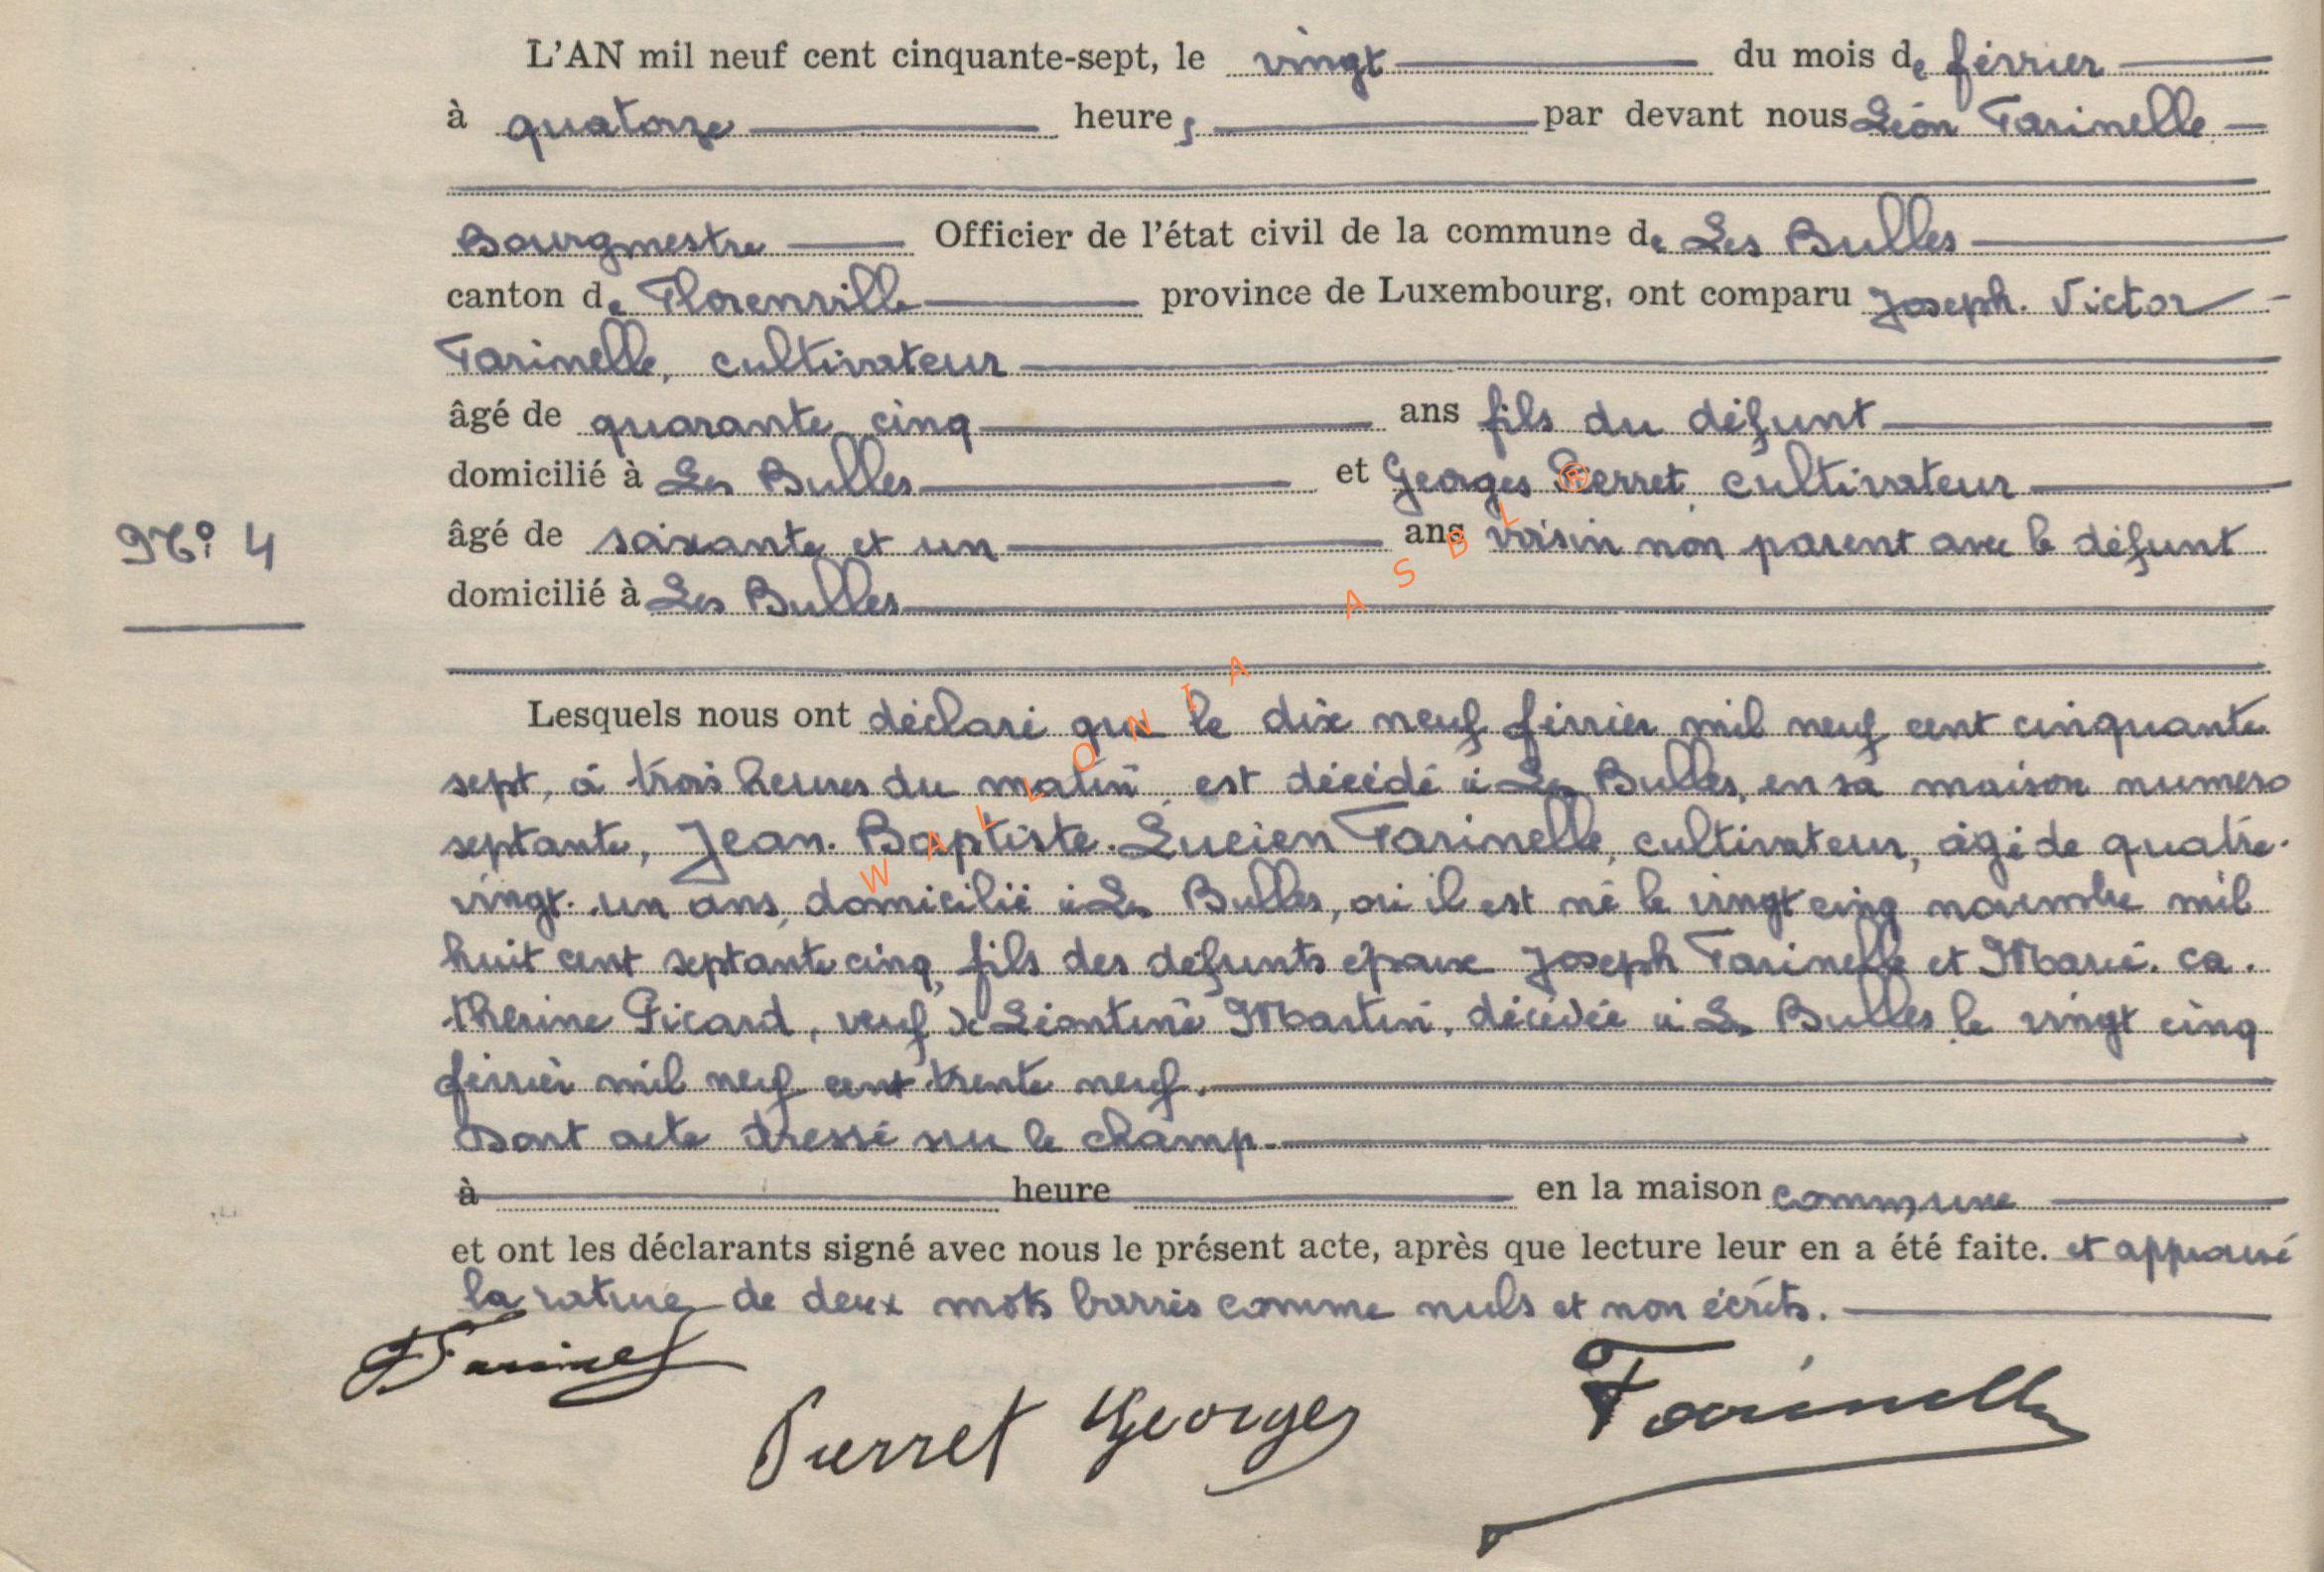 L'AN mil neuf cent cinquante-sept, le vingt du mois de février
à quatorze heures par devant nous Léon Farinelle
Bourgmestre Officier de l'état civil de la commune de Les Bulles
canton de Florenville province de Luxembourg, ont comparu Joseph. Victor
Farinelle, cultivateur
âgé de quarante cinq ans fils du défunt
domicilié à Les Bulles et Georges Pierret, cultivateur
âgé de soixante et un ans voisin non parent avec le défunt
N° 4
domicilié à Les Bulles
Lesquels nous ont déclaré que le dix neuf février mil neuf cent cinquante
sept, à trois heures du matin, est décédé à Les Bulles, en sa maison numéro
septante, Jean. Baptiste. Lucien Farinelle, cultivateur, âgé de quatre.
vingt. un ans, domicilié à Les Bulles, où il est né le vingt cinq novembre mil
huit cent septante cinq, fils des défunts époux Joseph Farinelle et Marie. Ca.
therine Picard, veuf de Léontine Martin, décédée à Les Bulles le vingt cinq
février mil neuf cent trente neuf.
Dont acte dressé sur le champ.
à heure en la maison commune
et ont les déclarants signé avec nous le présent acte, après que lecture leur en a été faite. et approuvé
la rature de deux mots barrés comme nuls et non écrits.
Pierret Georges
Farinelle
WALLONIA ASBL ®